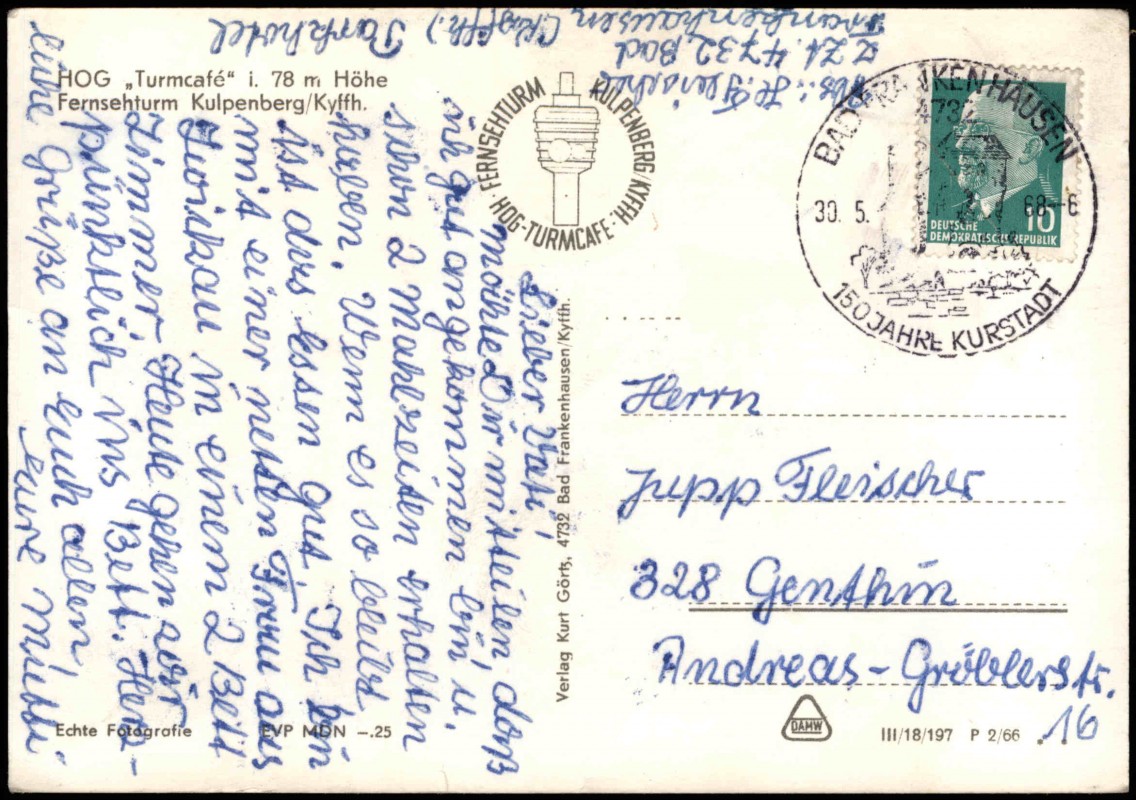 HOG „Turmcafé" i. 78 m Höhe
Fernsehturm Kulpenberg/Kyffh.
FERNSEHTURM KULPENBERG/KYFFH.
HOG-TURMCAFE
Abs.: H. Fleischer
z. Zt. 4732 Bad
Frankenhausen (Kyffh.)
Parkhotel
BAD FRANKENHAUSEN
4732
30. 5. 68-6
150 JAHRE KURSTADT
10
DEUTSCHE
DEMOKRATISCHE REPUBLIK
Lieber Vati,
möchte Dir mitteilen daß
ich gut angekommen bin u.
schon 2 Mahlzeiten erhalten
haben. Wenn es so bleibt
ist das Essen gut. Ich bin
mit einer netten Frau aus
Zwickau in einem 2 Bett
Zimmer. Heute gehen wir
pünktlich ins Bett. Herz-
liche Grüße an Euch allen,
Eure Mutti
Verlag Kurt Görtz, 4732 Bad Frankenhausen/Kyffh.
Herrn
Jupp Fleischer
328 Genthin
Andreas-Gröblerstr.
16
Echte Fotografie EVP MDN -.25
DAMW
III/18/197 P 2/66